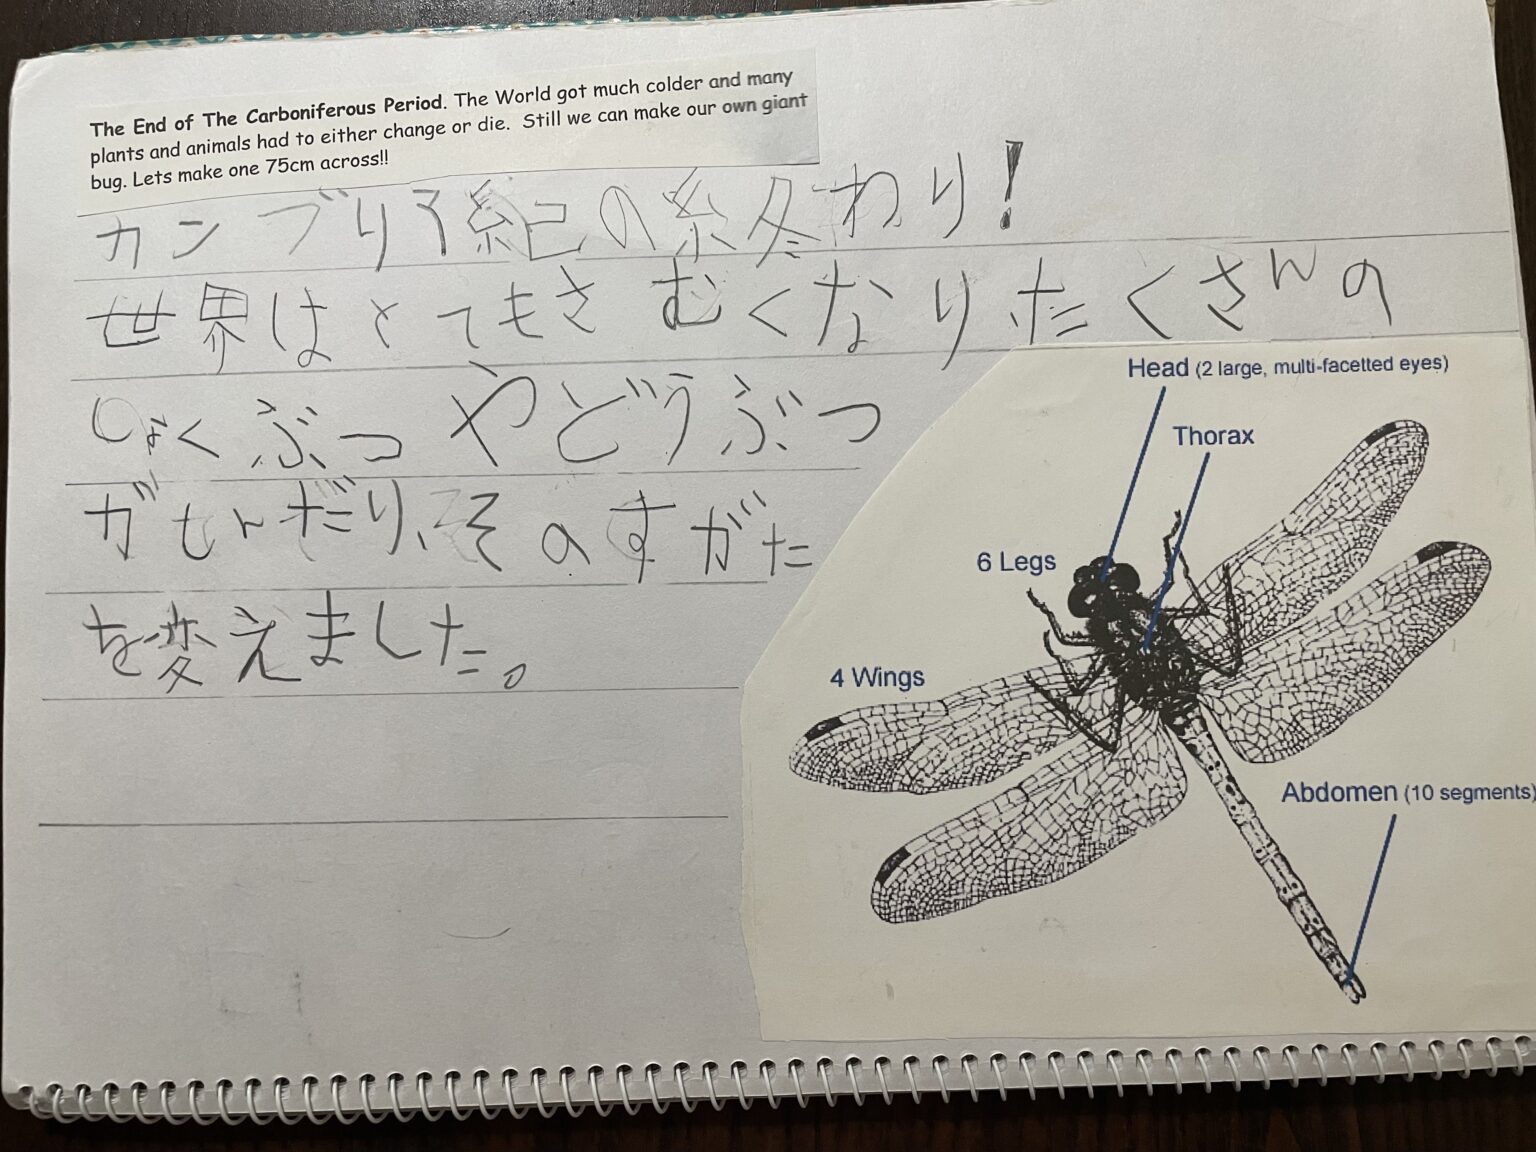 The End of The Carboniferous Period. The World got much colder and many
plants and animals had to either change or die. Still we can make our own giant
bug. Lets make one 75cm across!!
カンブリア紀の終わり!
世界はとてもさむくなりたくさんの
しょくぶつやどうぶつ
がしんだり、そのすがた
を変えました。
Head (2 large, multi-facetted eyes)
Thorax
6 Legs
4 Wings
Abdomen (10 segments)